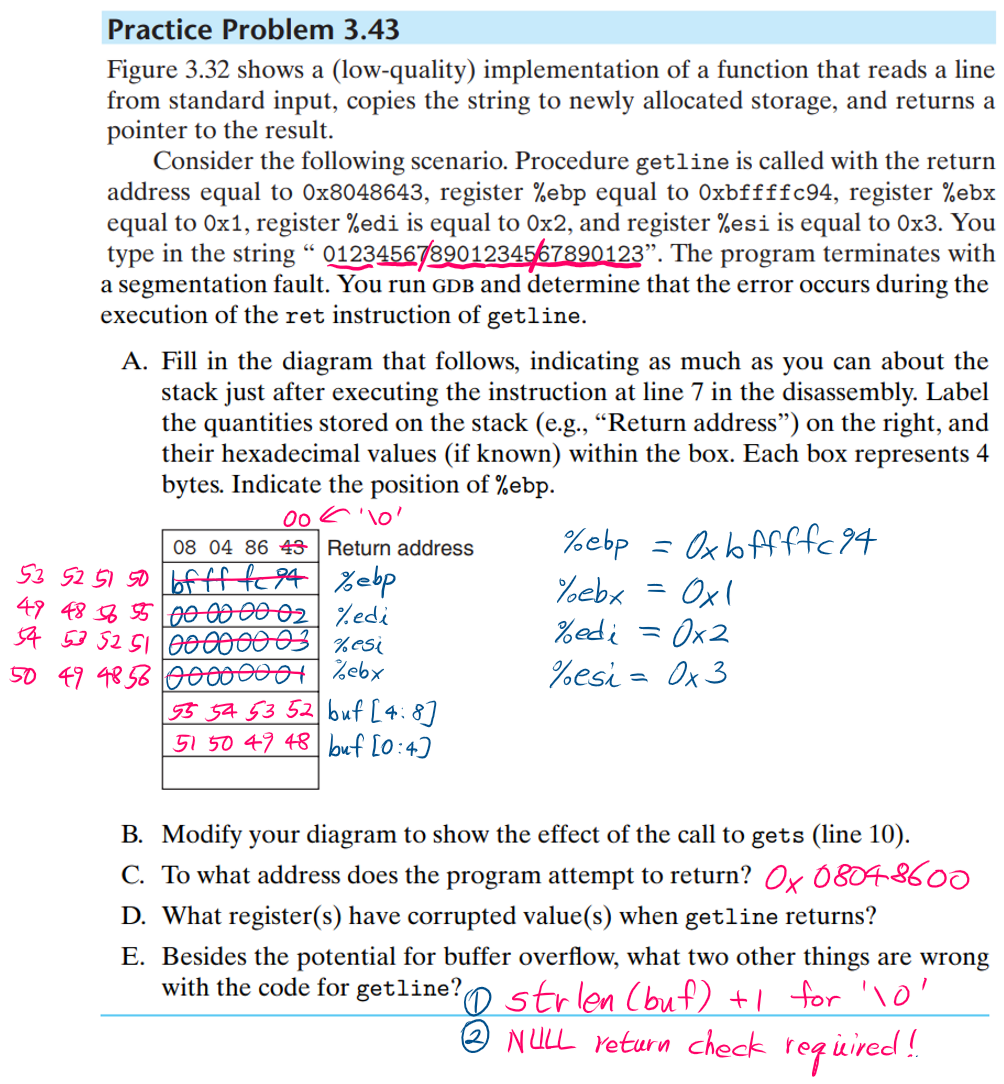 Practice Problem 3.43
Figure 3.32 shows a (low-quality) implementation of a function that reads a line
from standard input, copies the string to newly allocated storage, and returns a
pointer to the result.
Consider the following scenario. Procedure getline is called with the return
address equal to 0x8048643, register %ebp equal to 0xbffffc94, register %ebx
equal to 0x1, register %edi is equal to 0x2, and register %esi is equal to 0x3. You
type in the string “ 012345678901234567890123”. The program terminates with
a segmentation fault. You run GDB and determine that the error occurs during the
execution of the ret instruction of getline.
A. Fill in the diagram that follows, indicating as much as you can about the
stack just after executing the instruction at line 7 in the disassembly. Label
the quantities stored on the stack (e.g., “Return address”) on the right, and
their hexadecimal values (if known) within the box. Each box represents 4
bytes. Indicate the position of %ebp.
00 ← '\0'
08 04 86 43 Return address %ebp = 0xbffffc94
53 52 51 50 bfff fc 94 %ebp
%ebx = 0x1
49 48 56 55 00 00 00 02 %edi
%edi = 0x2
54 53 52 51 00000003 %esi
50 49 48 56 00000001 %ebx %esi = 0x3
55 54 53 52 buf [4:8]
51 50 49 48 buf [0:4]
B. Modify your diagram to show the effect of the call to gets (line 10).
C. To what address does the program attempt to return? 0x 08048600
D. What register(s) have corrupted value(s) when getline returns?
E. Besides the potential for buffer overflow, what two other things are wrong
with the code for getline? ① strlen (buf) +1 for '\0'
② NULL return check required!